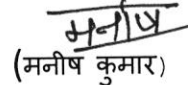 मनीष
(मनीष कुमार)